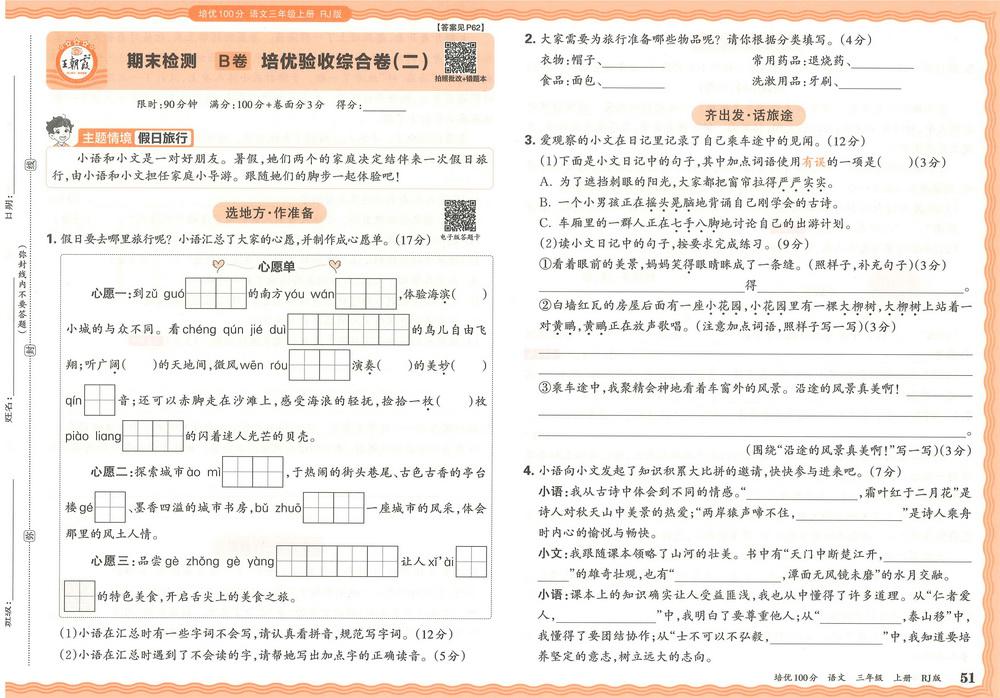 培优100分 语文三年级上册 RJ版
【答案见P62】
王朝霞
期末检测 B卷 培优验收综合卷(二)
拍照批改+错题本
限时:90分钟 满分:100分+卷面分3分 得分:
主题情境 假日旅行
小语和小文是一对好朋友。暑假,她们两个的家庭决定结伴来一次假日旅
行,由小语和小文担任家庭小导游。跟随她们的脚步一起体验吧!
选地方·作准备
电子版答题卡
1. 假日要去哪里旅行呢?小语汇总了大家的心愿,并制作成心愿单。(17分)
心愿单
心愿一:到zǔ guó 的南方yóu wán ,体验海滨( )
小城的与众不同。看chéng qún jié duì 的鸟儿自由飞
翔;听广阔( )的天地间,微风wēn róu 演奏( )的美妙( )
qín 音;还可以赤脚走在沙滩上,感受海浪的轻抚,捡拾一枚( )枚
piào liang 的闪着迷人光芒的贝壳。
心愿二:探索城市ào mì ,于热闹的街头巷尾、古色古香的亭台
楼gé 、墨香四溢的城市书房,bǔ zhuō 一座城市的风采,体会
那里的风土人情。
心愿三:品尝gè zhǒng gè yàng 让人xī'ài
的特色美食,开启舌尖上的美食之旅。
(1)小语在汇总时有一些字词不会写,请认真看拼音,规范写字词。(12分)
(2)小语在汇总时遇到了不会读的字,请帮她写出加点字的正确读音。(5分)
日期:
姓名:
班级:
(弥封线内不要答题)
线
封
弥
2. 大家需要为旅行准备哪些物品呢?请你根据分类填写。(4分)
衣物:帽子、 常用药品:退烧药、
食品:面包、 洗漱用品:牙刷、
齐出发·话旅途
3. 爱观察的小文在日记里记录了自己乘车途中的见闻。(12分)
(1)下面是小文日记中的句子,其中加点词语使用有误的一项是( )(3分)
A. 为了遮挡刺眼的阳光,大家都把窗帘拉得严严实实。
B. 一个小男孩正在摇头晃脑地背诵自己刚学会的古诗。
C. 车厢里的一群人正在七手八脚地讨论自己的出游计划。
(2)读小文日记中的句子,按要求完成练习。(9分)
①看着眼前的美景,妈妈笑得眼睛眯成了一条缝。(照样子,补充句子)(3分)
得 。
②白墙红瓦的房屋后面有一座小花园,小花园里有一棵大柳树,大柳树上站着一
对黄鹂,黄鹂正在放声歌唱。(注意加点词语,照样子写一写)(3分)
③乘车途中,我聚精会神地看着车窗外的风景。沿途的风景真美啊!
。
(围绕“沿途的风景真美啊!”写一写)(3分)
4. 小语向小文发起了知识积累大比拼的邀请,快快参与进来吧。(7分)
小语:我从古诗中体会到不同的情感。“ ,霜叶红于二月花”是
诗人对秋天山中美景的热爱;“两岸猿声啼不住, ”是诗人乘舟
时内心的愉悦与畅快。
小文:我跟随课本领略了山河的壮美。书中有“天门中断楚江开,
”的雄奇壮观,也有“ ,潭面无风镜未磨”的水月交融。
小语:课本上的知识确实让人受益匪浅,我也从中懂得了许多道理。从“仁者爱
人, ”中,我明白了要尊重他人;从“ ,泰山移”中,
我懂得了要团结协作;从“士不可以不弘毅, ”中,我知道要培
养坚定的意志,树立远大的志向。
培优100分 语文 三年级 上册 RJ版 51